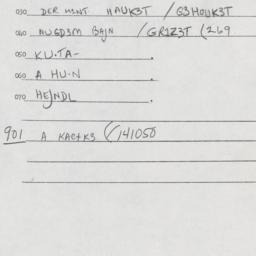 030 DER HINT HAUK3T / G3HOUK3T
040 AUGD3M BAJN / GR1Z3T (269
050 KU.TA-
060 A HU.N
070 HEJNDL
901 A KAC+K3 (/141050